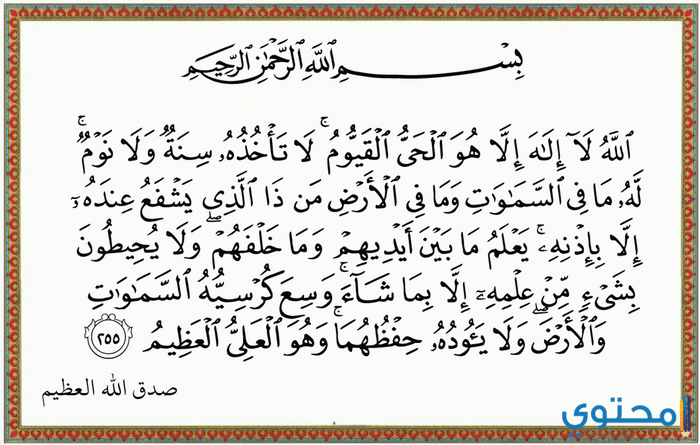 بِسْمِ اللَّهِ الرَّحْمَٰنِ الرَّحِيمِ
اللَّهُ لَآ إِلَٰهَ إِلَّا هُوَ الْحَيُّ الْقَيُّومُ ۚ لَا تَأْخُذُهُۥ سِنَةٌ وَلَا نَوْمٌ ۚ
لَّهُۥ مَا فِى السَّمَٰوَٰتِ وَمَا فِى الْأَرْضِ مَن ذَا الَّذِى يَشْفَعُ عِندَهُۥٓ
إِلَّا بِإِذْنِهِۦ ۚ يَعْلَمُ مَا بَيْنَ أَيْدِيهِمْ وَمَا خَلْفَهُمْ ۖ وَلَا يُحِيطُونَ
بِشَىْءٍ مِّنْ عِلْمِهِۦٓ إِلَّا بِمَا شَآءَ ۚ وَسِعَ كُرْسِيُّهُ السَّمَٰوَٰتِ
وَالْأَرْضَ ۖ وَلَا يَـُٔودُهُۥ حِفْظُهُمَا ۚ وَهُوَ الْعَلِىُّ الْعَظِيمُ ٢٥٥
صدق الله العظيم
محتوي